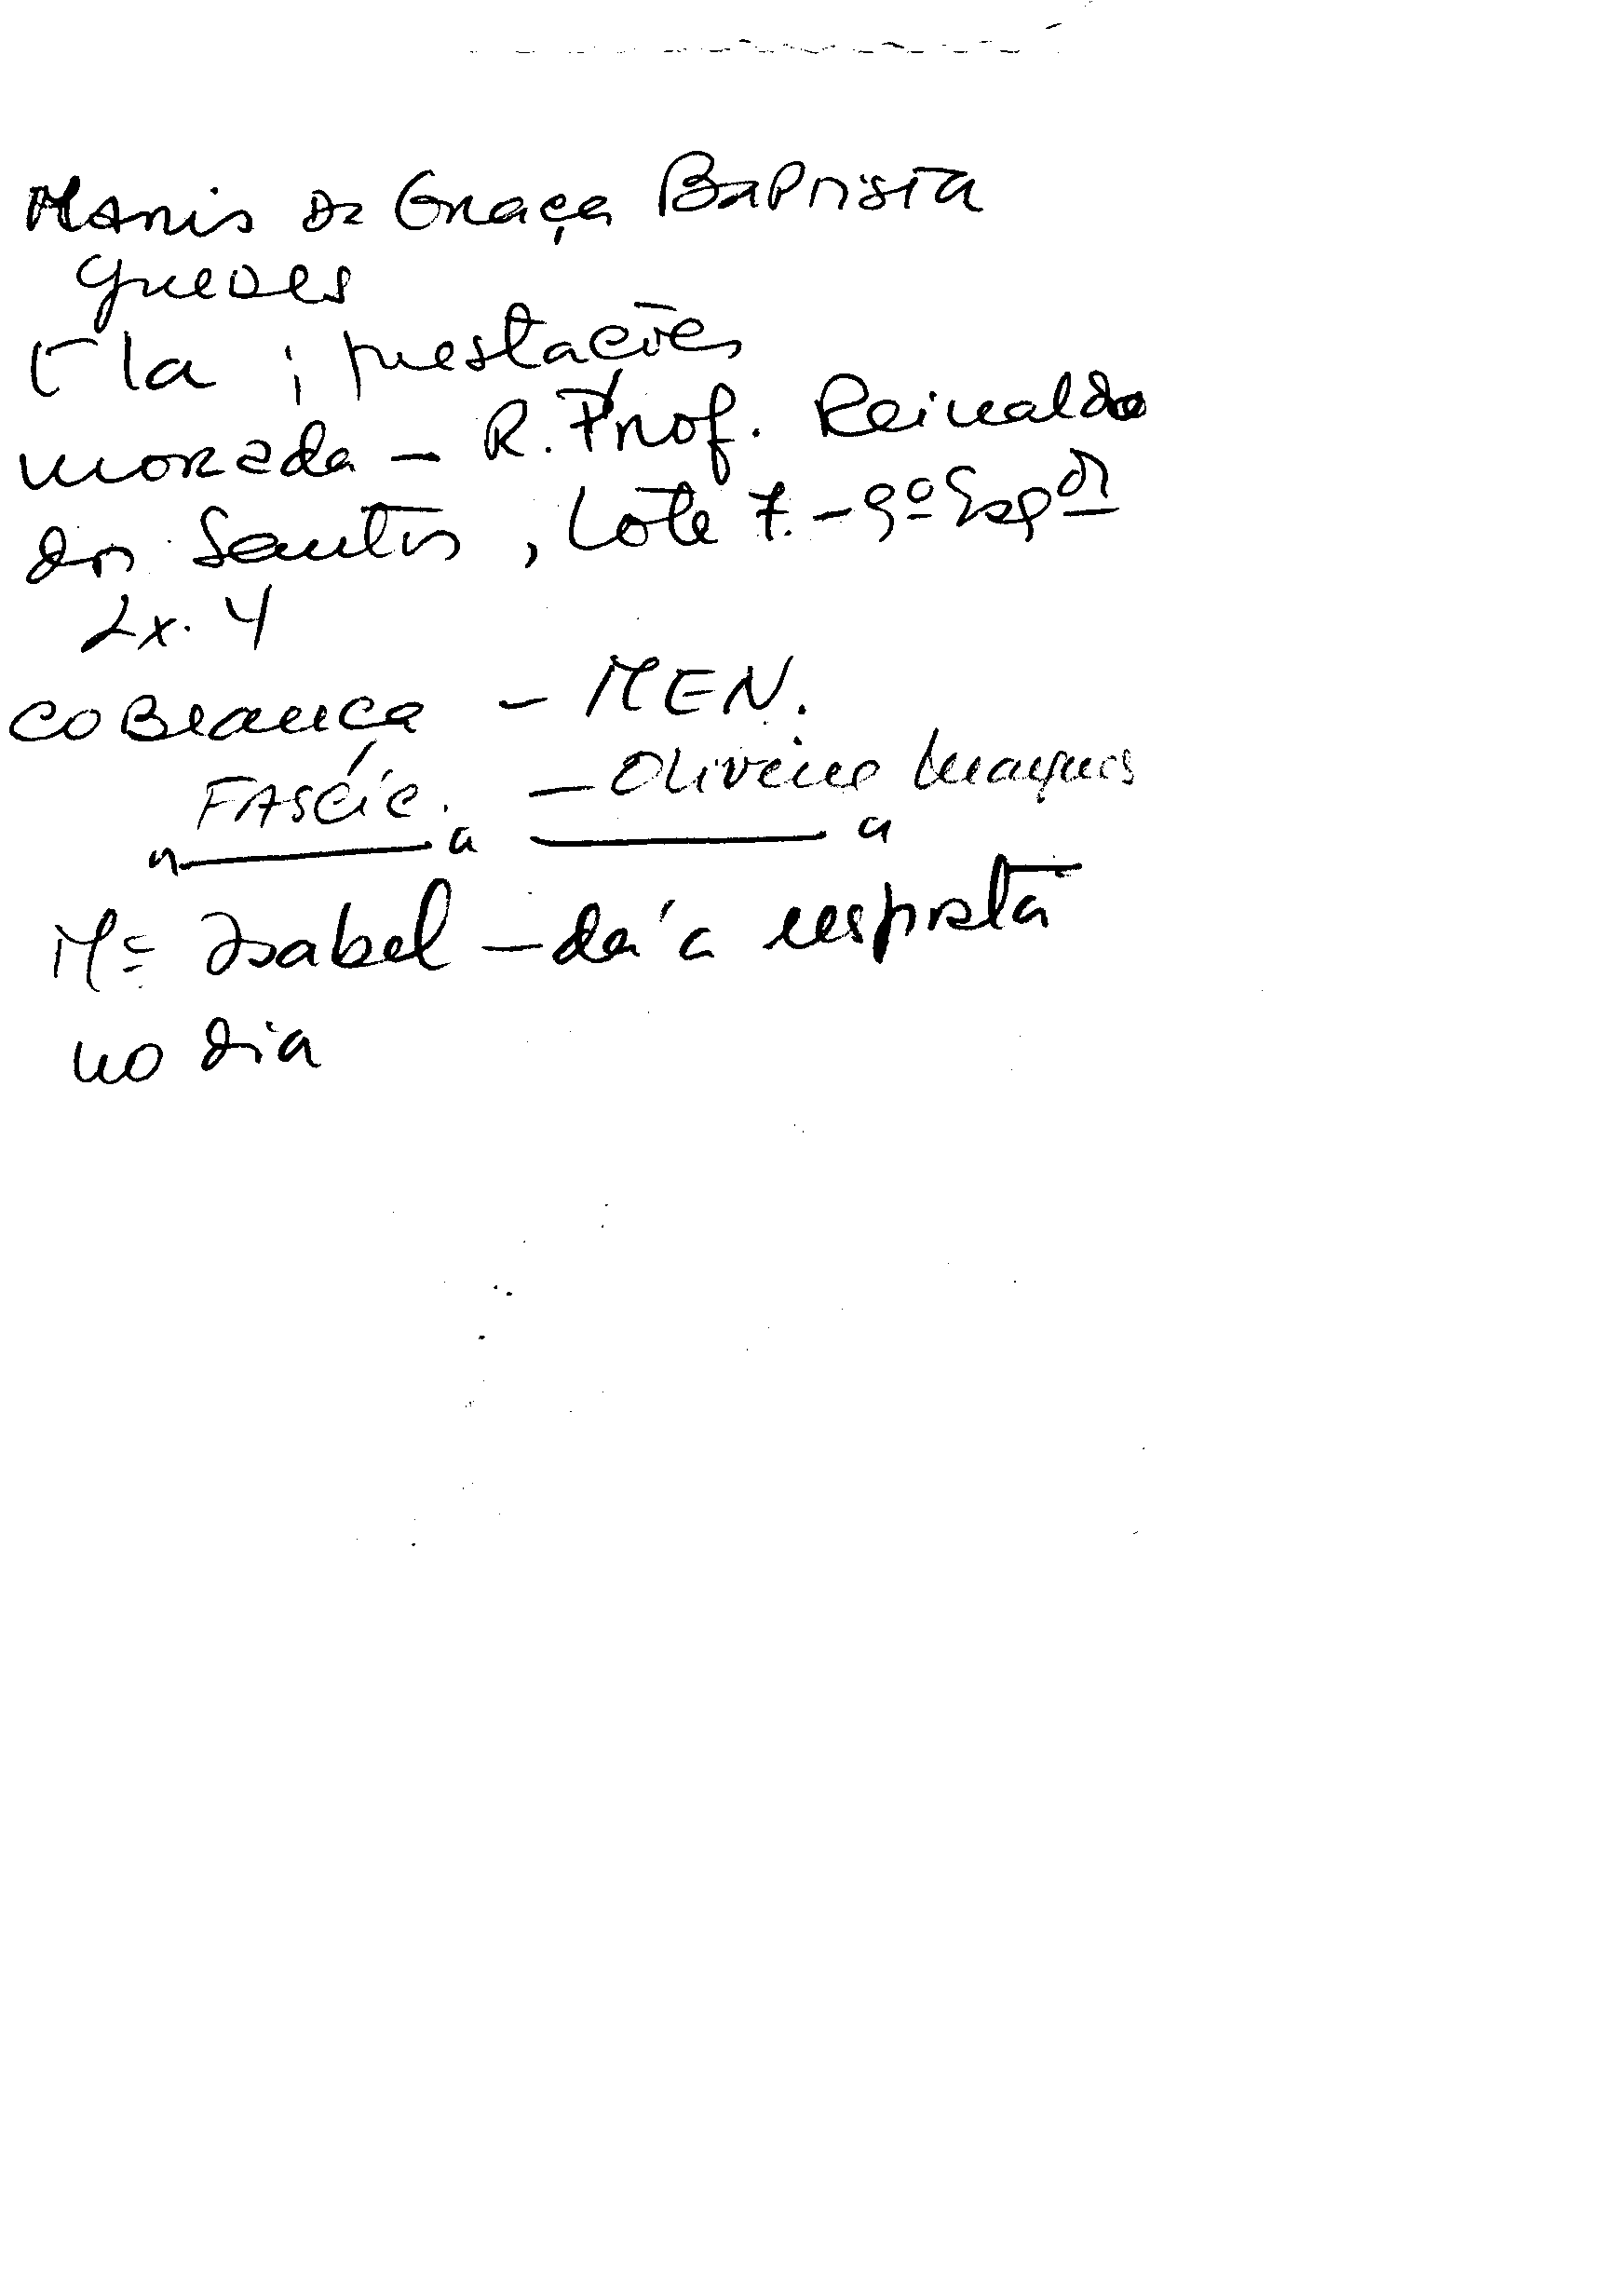 Maria da Graça Baptista
Guedes
prestações
morada - R. Prof. Reinaldo
dos Santos, Lote 7. - 9º Esqdº
Lx. 4
COBRANÇA - MEN.
FASCÍC. - Oliveira Marques
Mª Isabel - dá a resposta
no dia